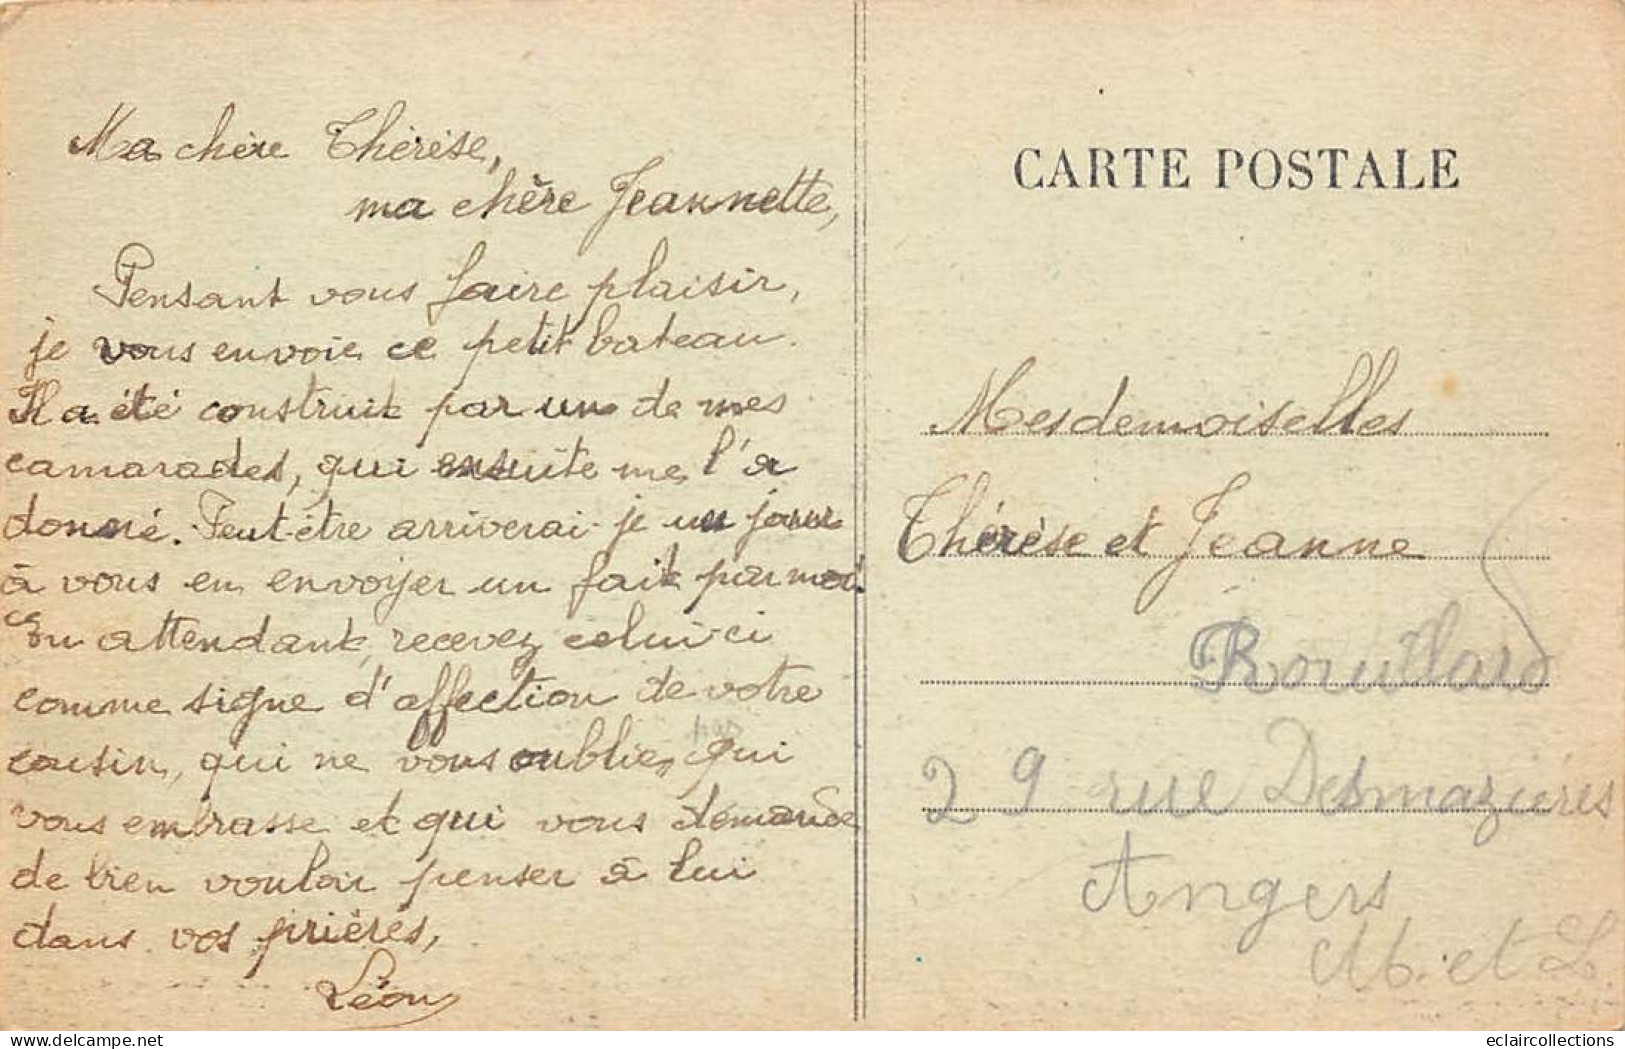 Ma chère Thérèse,
ma chère Jeannette,
Pensant vous faire plaisir,
je vous envoie ce petit bateau.
Il a été construit par un de mes
camarades, qui ensuite me l'a
donné. Peut-être arriverai-je un jour
à vous en envoyer un fait par moi.
En attendant, recevez celui-ci
comme signe d'affection de votre
cousin, qui ne vous oublie pas, qui
vous embrasse et qui vous demande
de bien vouloir penser à lui
dans vos prières,
Léon
CARTE POSTALE
Mesdemoiselles
Thérèse et Jeanne
Rouillard
29 rue Desmazières
Angers
M. et L.
delcampe.net
eclaircollections